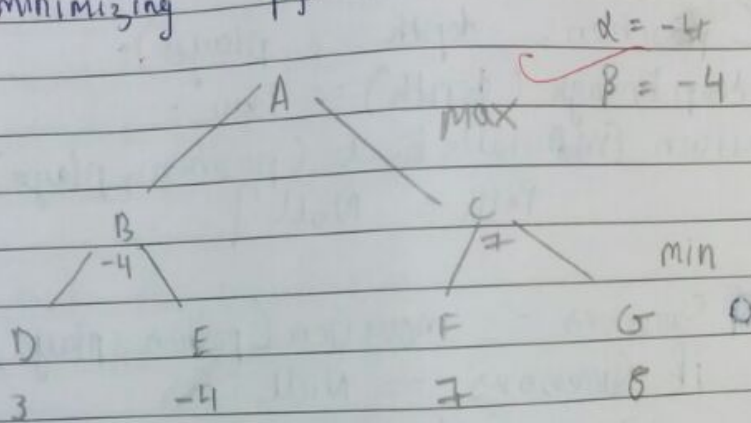 Minimizing
α = -4
A
β = -4
Max
B
C
-4
7
min
D E F G
3 -4 7 8